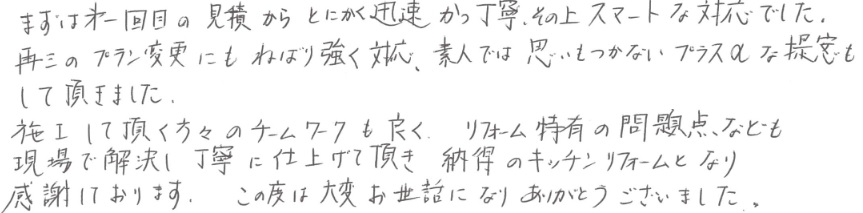 まずは第一回目の見積からとにかく迅速かつ丁寧、その上スマートな対応でした。
再三のプラン変更にもねばり強く対応、素人では思いもつかないプラスαな提案も
して頂きました。
施工して頂く方々のチームワークも良く、リフォーム特有の問題点なども
現場で解決し丁寧に仕上げて頂き納得のキッチンリフォームとなり
感謝しております。この度は大変お世話になりありがとうございました。